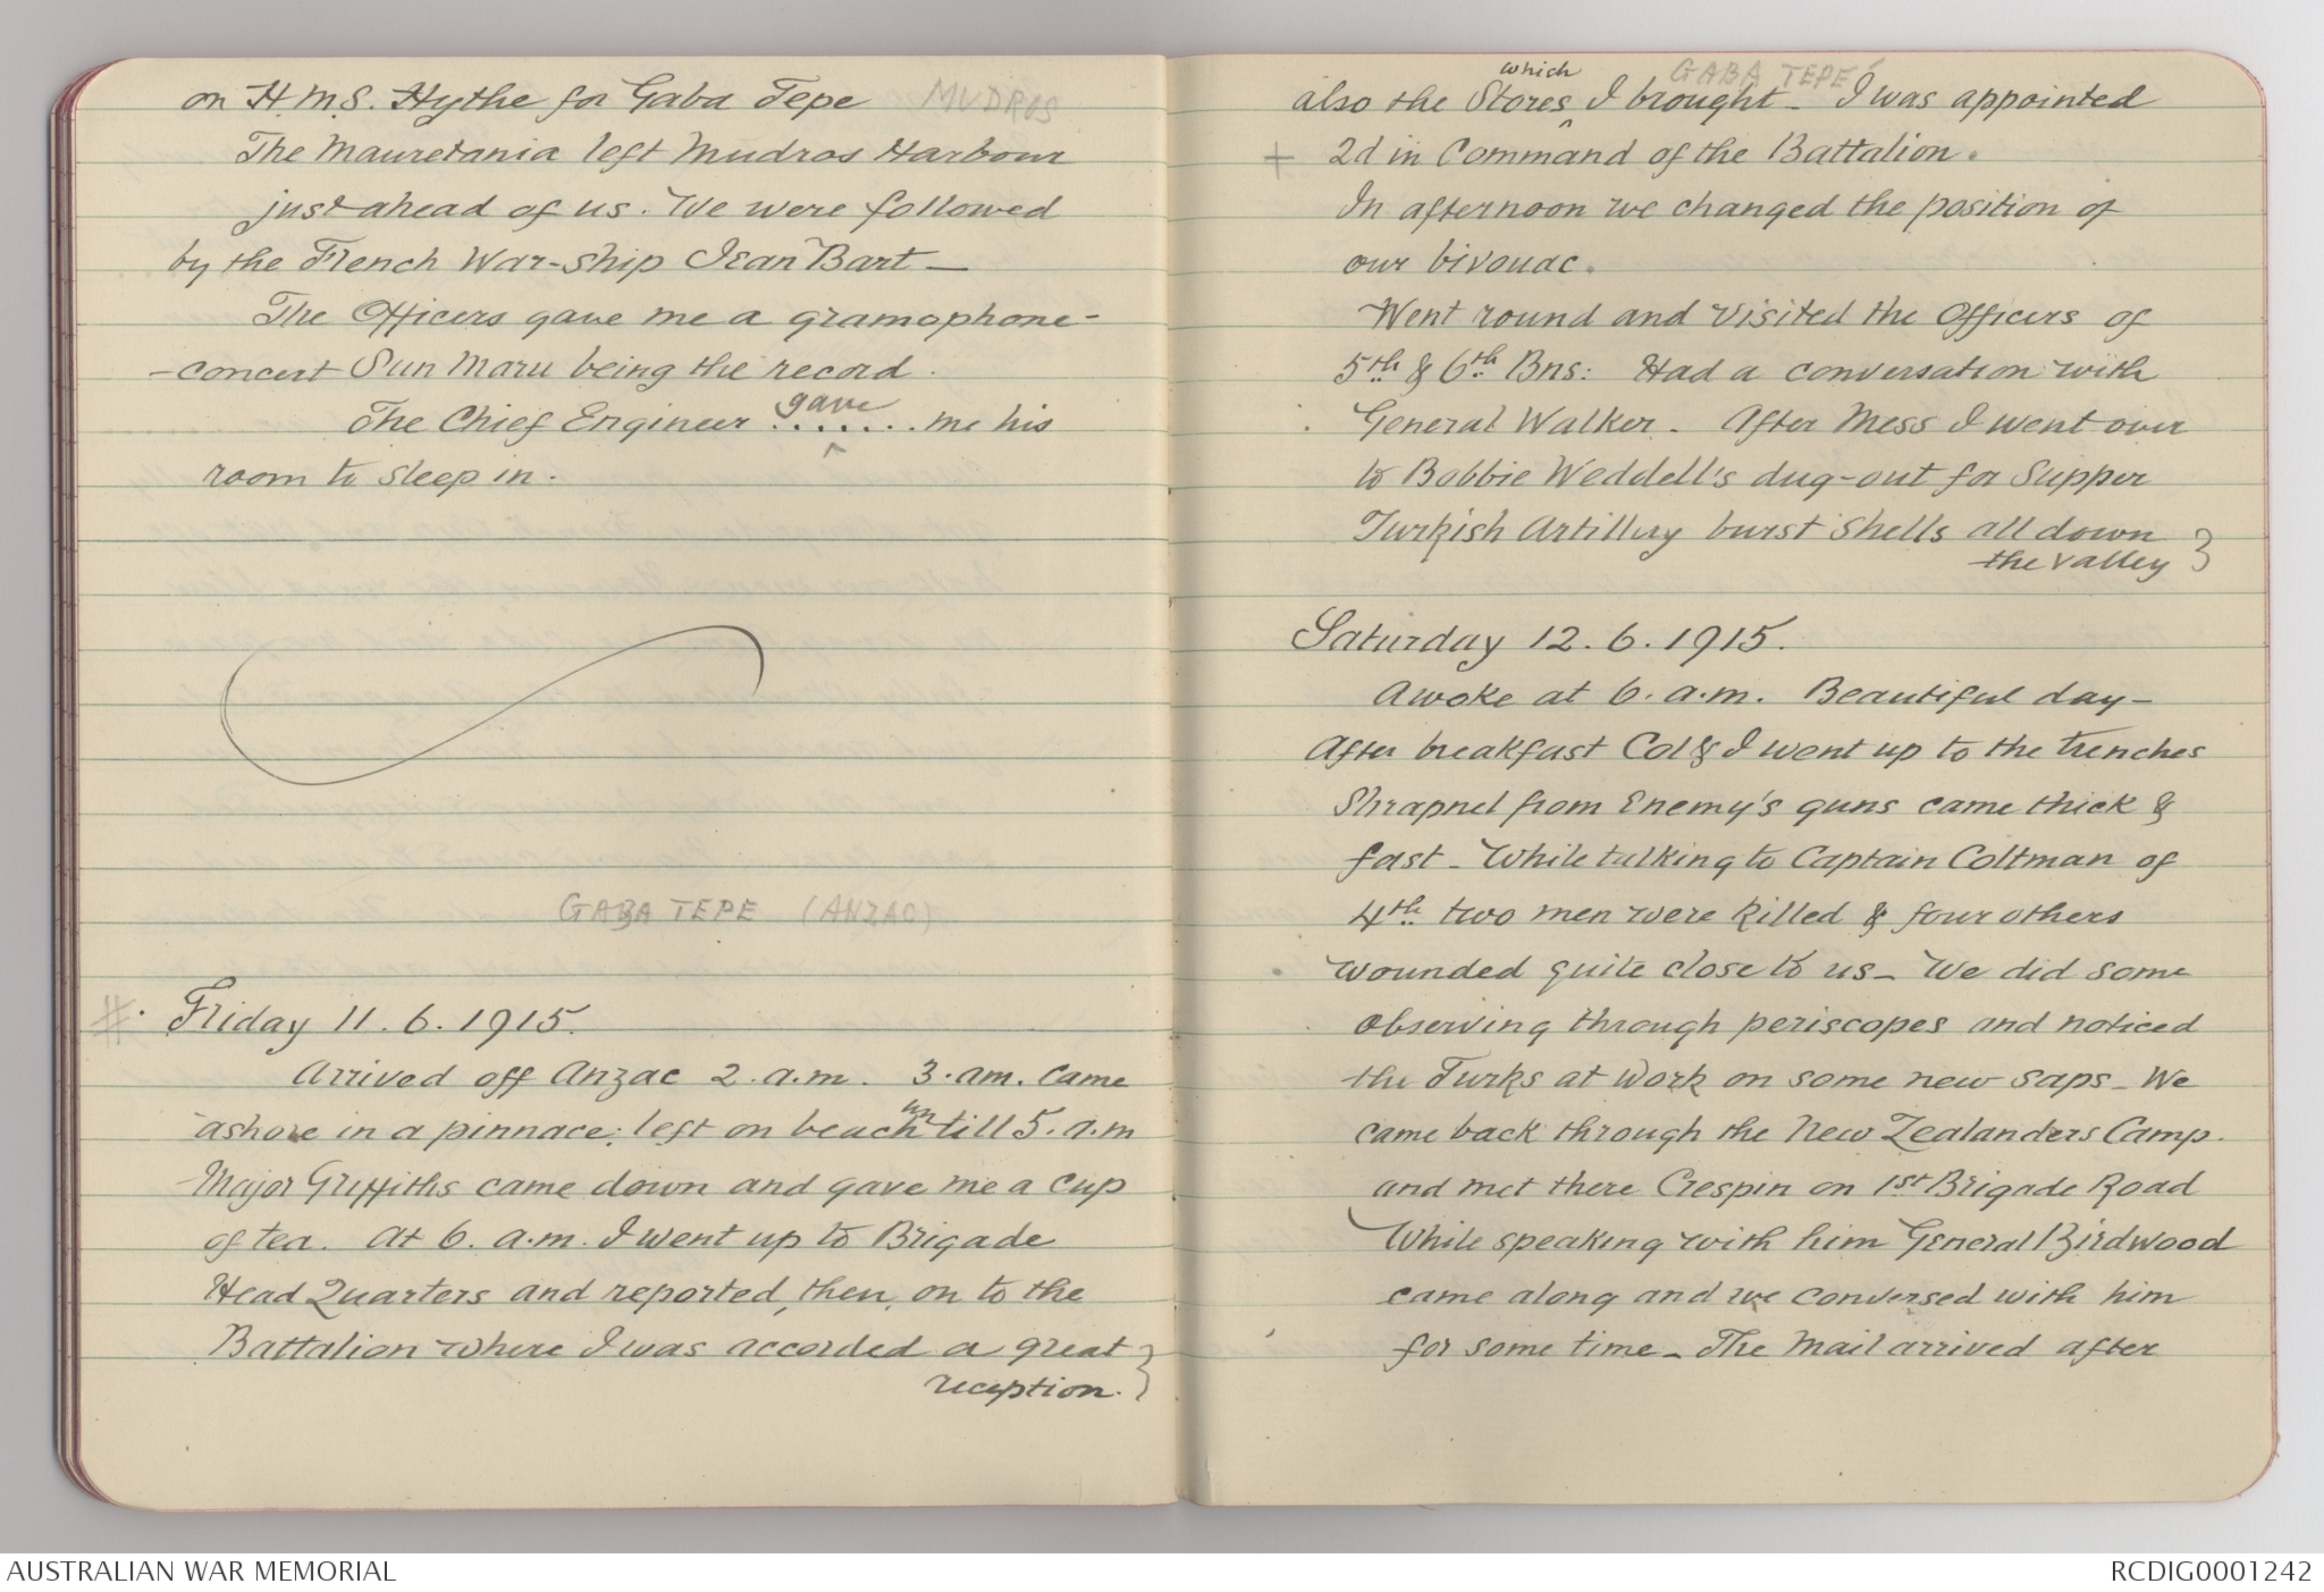 on H.M.S. Hythe for Gaba Tepe MUDROS
The Mauretania left Mudros Harbour
just ahead of us. We were followed
by the French War-ship Jean Bart —
The Officers gave me a gramophone-
-concert Sun Maru being the record.
The Chief Engineer gave ....... me his
room to sleep in.
GABA TEPE (ANZAC)
# Friday 11.6.1915.
Arrived off Anzac 2.a.m. 3.am. Came
ashore in a pinnace; left on beach until 5.a.m
Major Griffiths came down and gave me a cup
of tea. At 6.a.m. I went up to Brigade
Head Quarters and reported, then, on to the
Battalion where I was accorded a great }
reception.
GABA TEPE
also the Stores which I brought - I was appointed
+ 2d in Command of the Battalion.
In afternoon we changed the position of
our bivouac.
Went round and visited the Officers of
5th & 6th Bns: Had a conversation with
General Walker. After Mess I went over
to Bobbie Weddell's dug-out for Supper
Turkish Artillery burst Shells all down }
the valley
Saturday 12.6.1915.
Awoke at 6.a.m. Beautiful day -
After breakfast Col & I went up to the trenches
Shrapnel from Enemy's guns came thick &
fast - While talking to Captain Coltman of
4th two men were killed & four others
wounded quite close to us - We did some
observing through periscopes and noticed
the Turks at work on some new saps - We
came back through the New Zealanders Camp.
and met there Crespin on 1st Brigade Road
While speaking with him General Birdwood
came along and we conversed with him
for some time - The Mail arrived after
AUSTRALIAN WAR MEMORIAL
RCDIG0001242